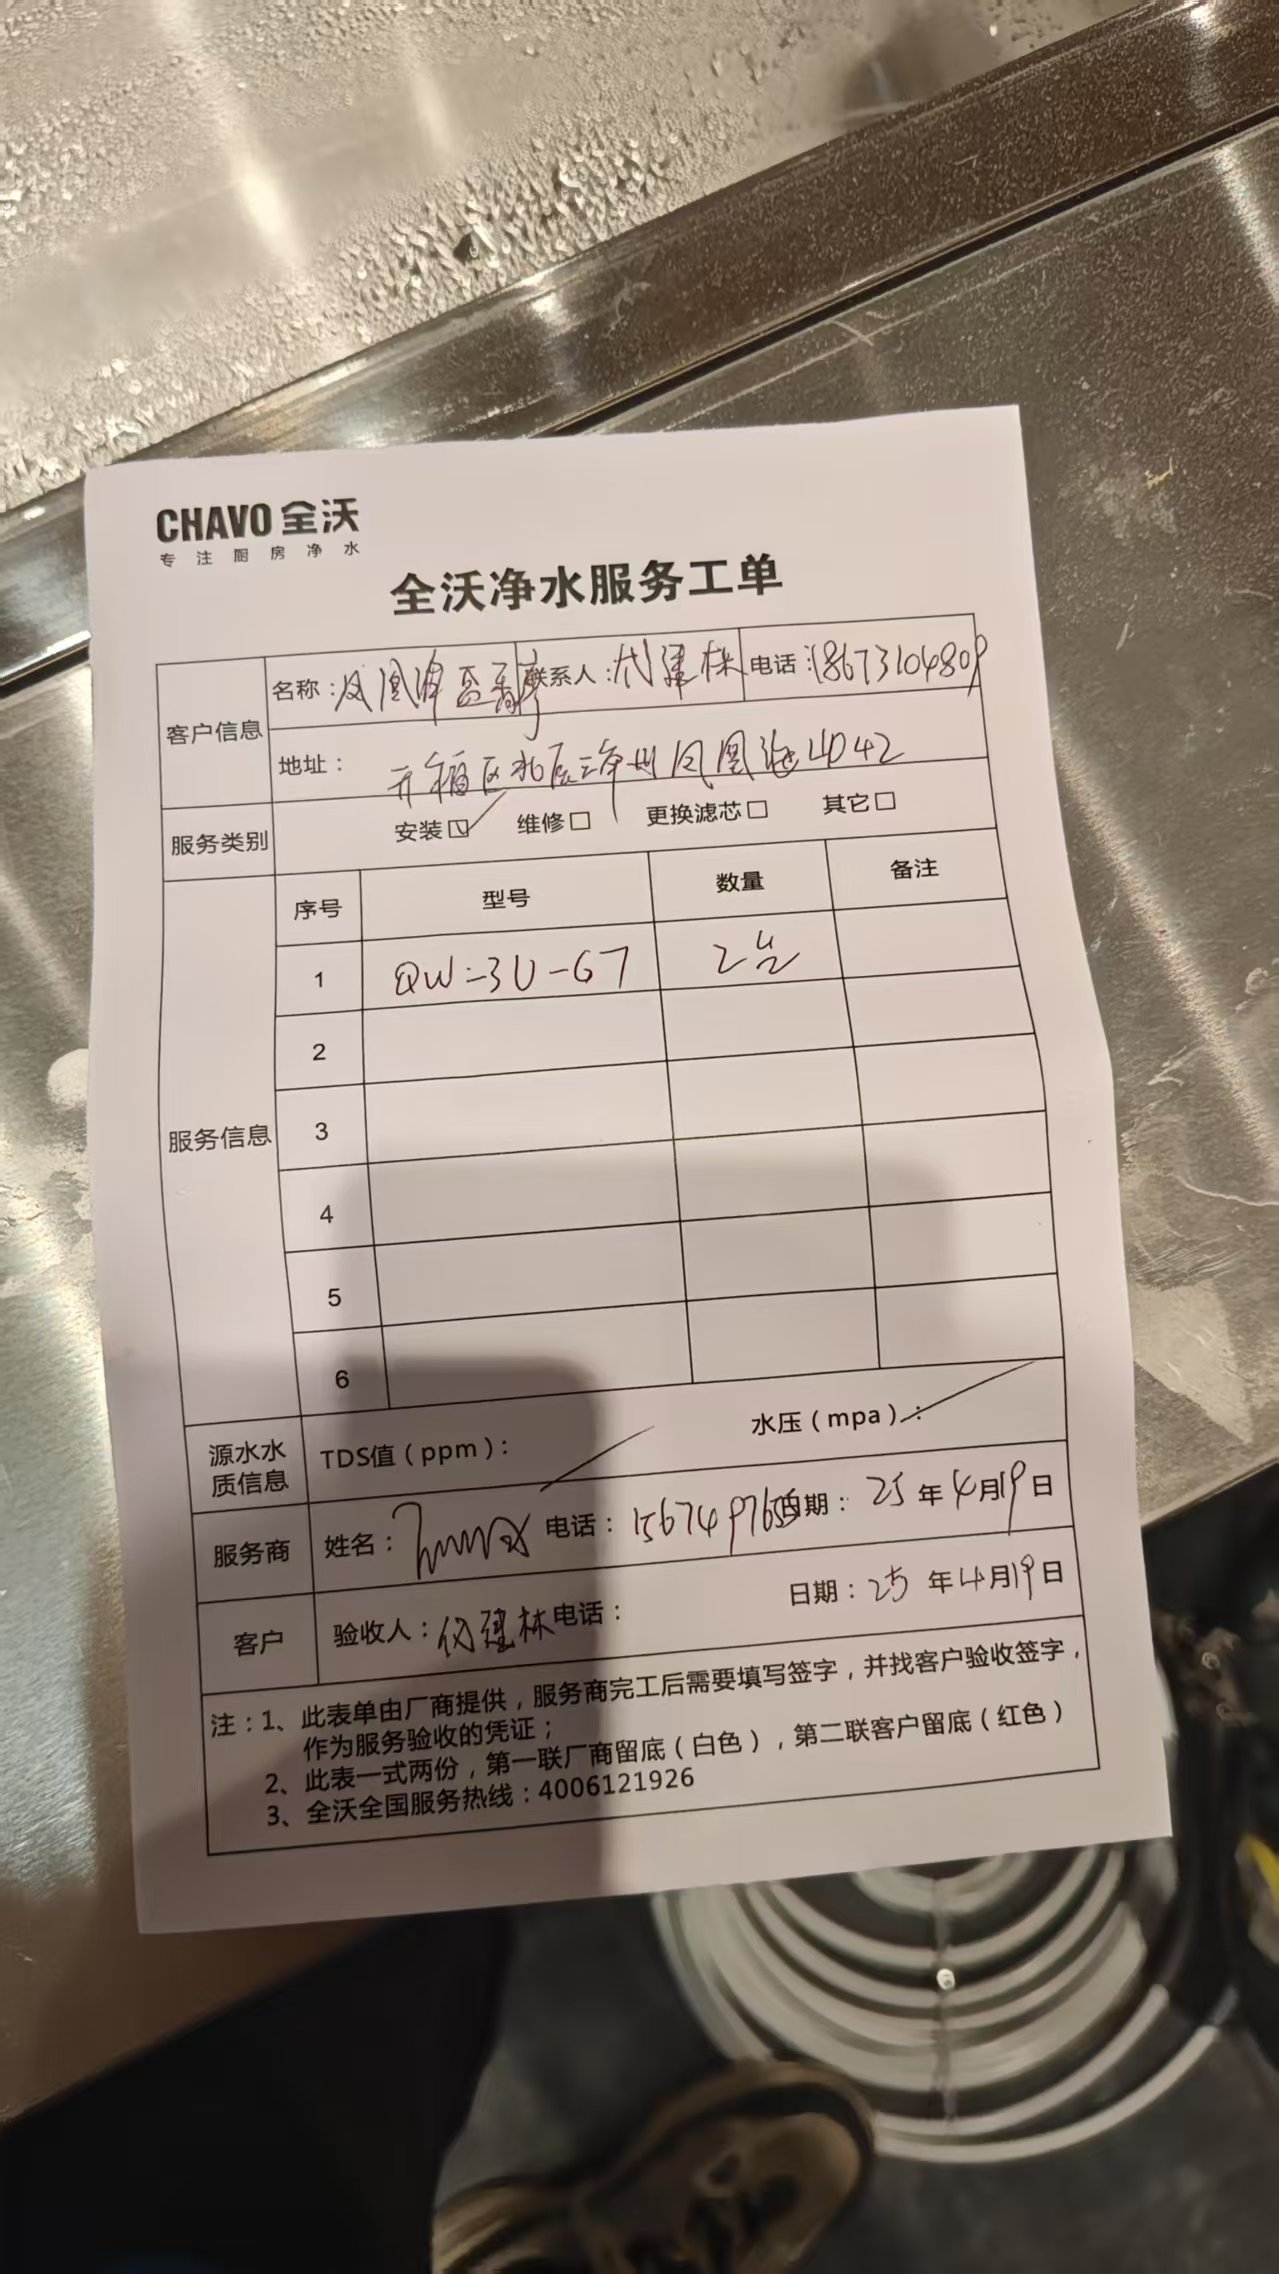 CHAVO 全沃
专注厨房净水
全沃净水服务工单
客户信息
名称：凤凰海 联系人：代建林 电话：18673104809
地址：开福区北辰三角洲凤凰海4D42
服务类别 安装☑ 维修□ 更换滤芯□ 其它□
服务信息
序号 型号 数量 备注
1 QW-3U-G7 2台
2
3
4
5
6
源水水质信息 TDS值（ppm）： 水压（mpa）：
服务商 姓名： 电话： 日期：25年4月19日
客户 验收人：代建林 电话： 日期：25年4月19日
注：1、此表单由厂商提供，服务商完工后需要填写签字，并找客户验收签字，
作为服务验收的凭证；
2、此表一式两份，第一联厂商留底（白色），第二联客户留底（红色）
3、全沃全国服务热线：4006121926